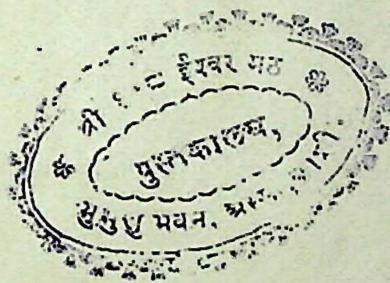 ❀ श्री १०८ ईश्वर मठ ❀
पुस्तकालय,
मुमुक्षु भवन,